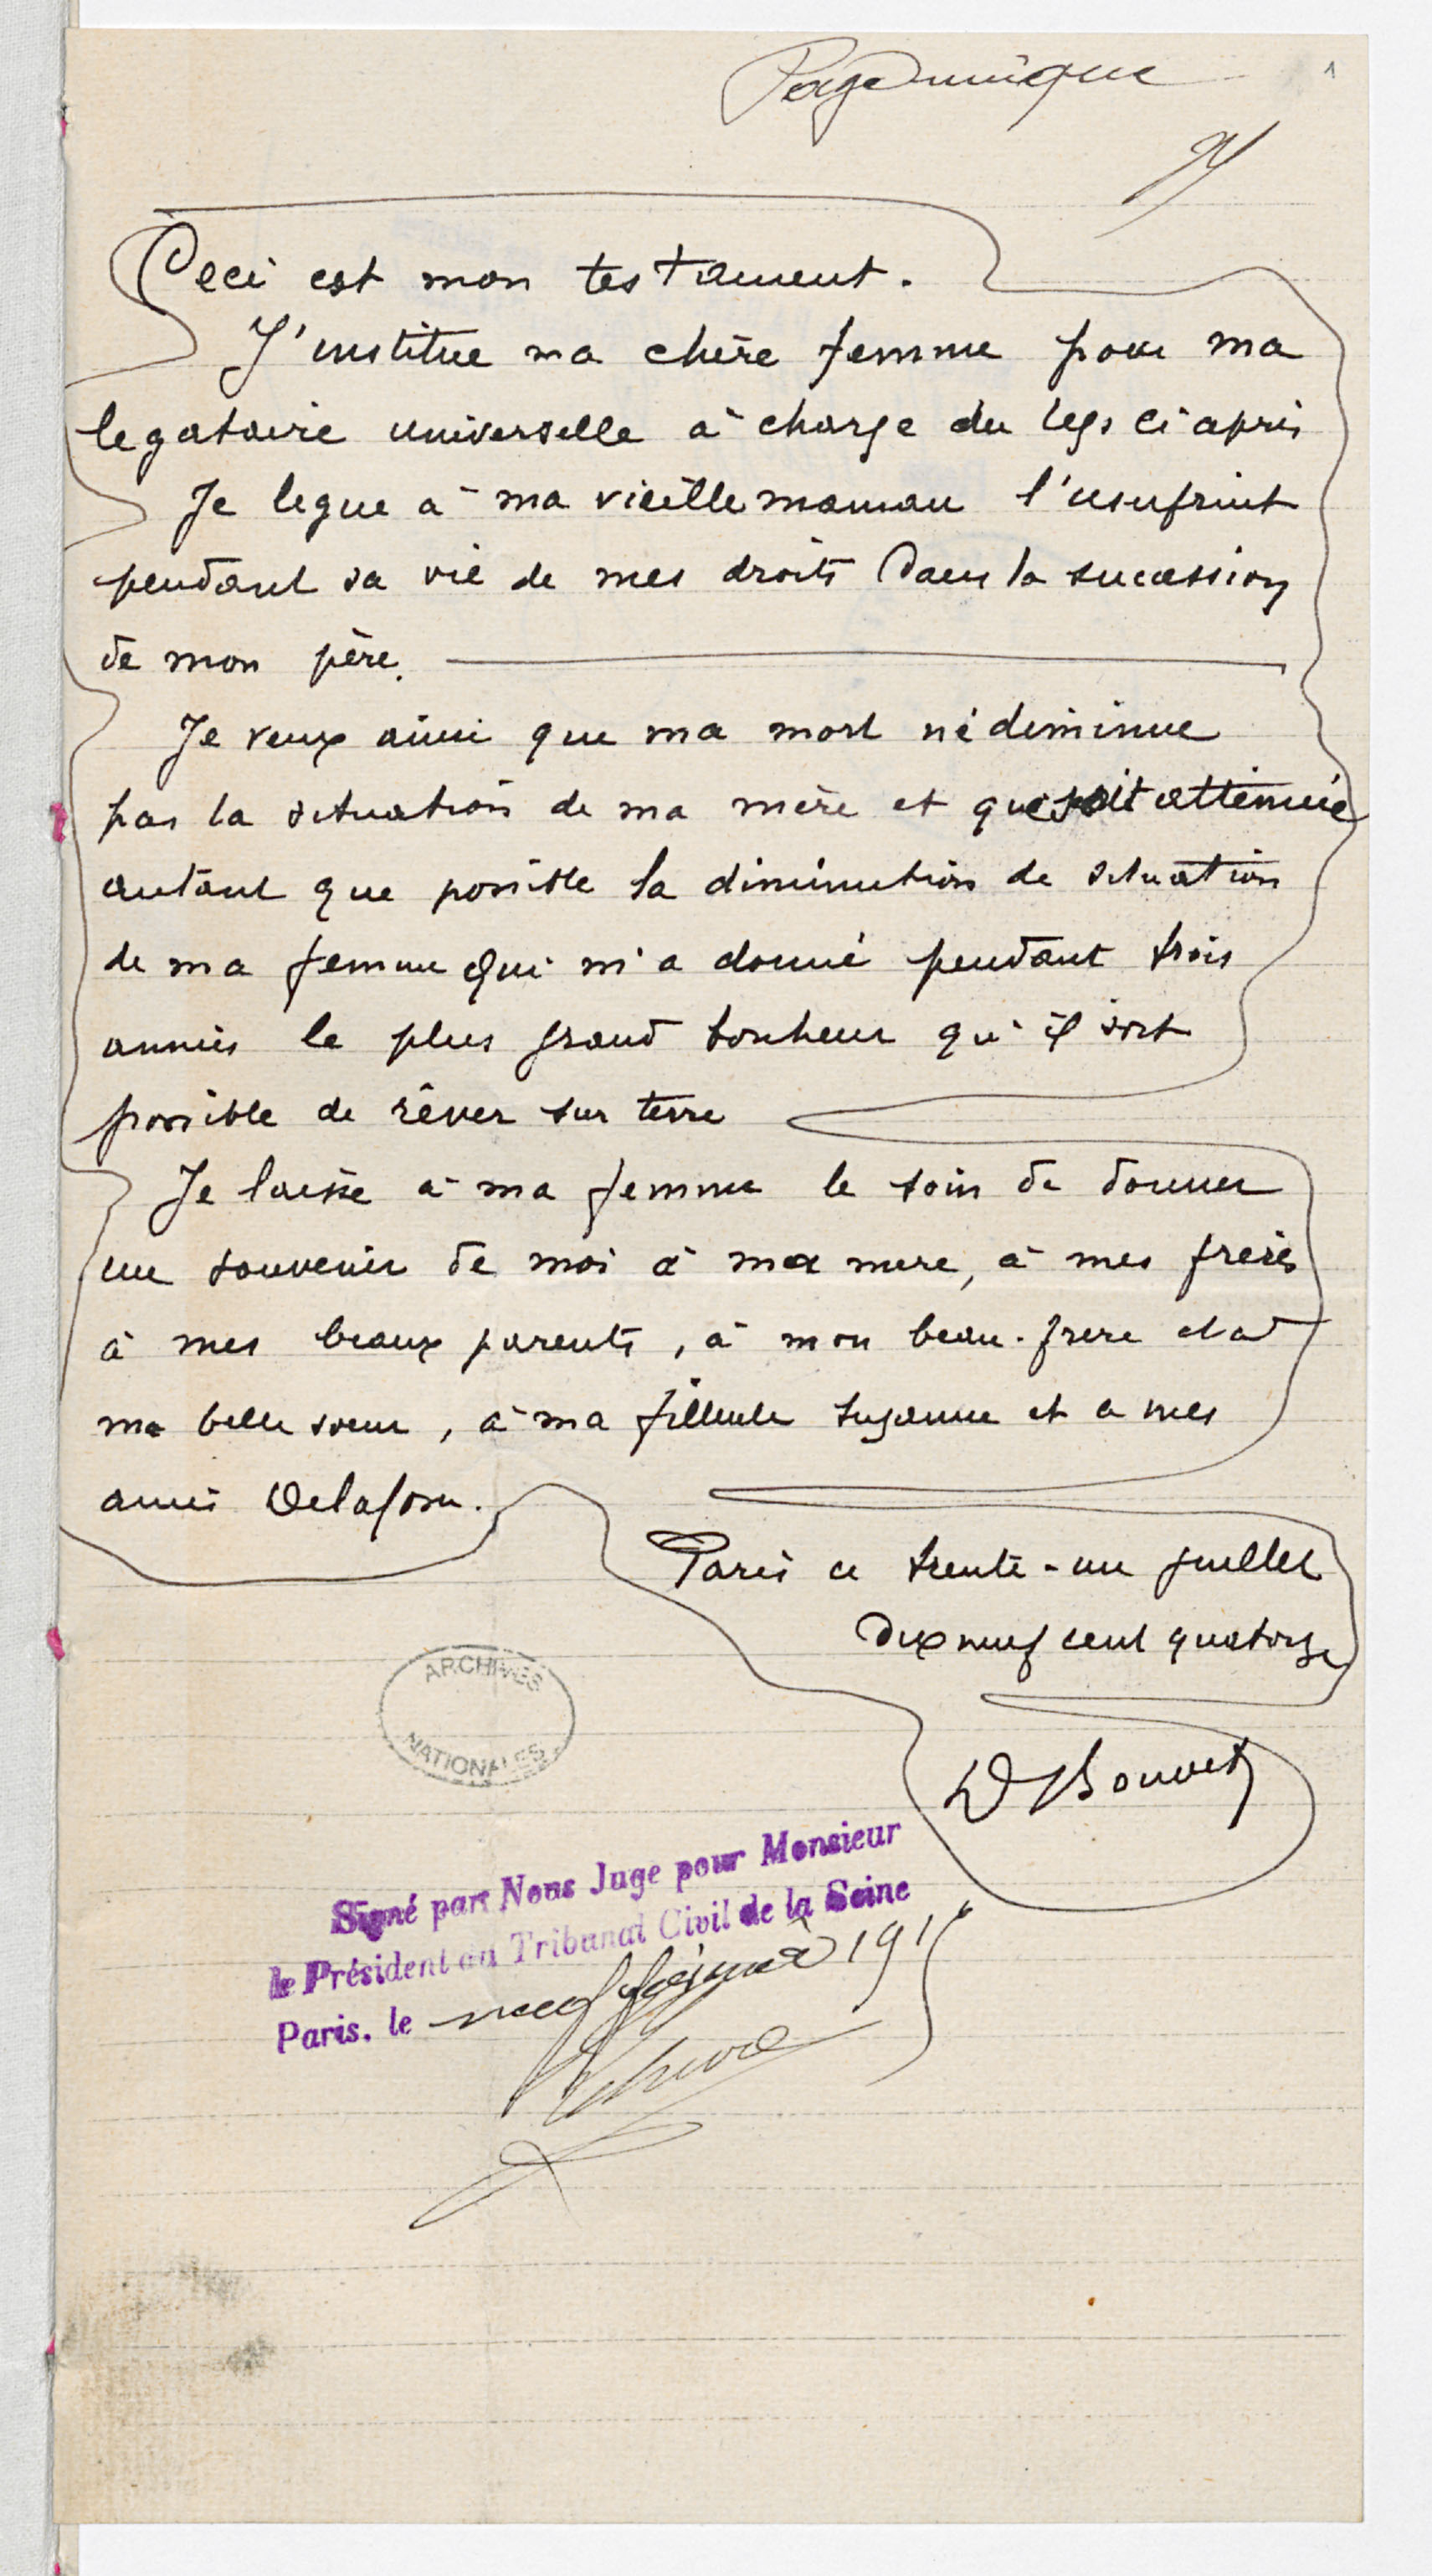 Page unique
1
Ceci est mon testament.
J'institue ma chère femme pour ma
legataire universelle à charge du legs ci après
Je legue à ma vieille maman l'usufruit
pendant sa vie de mes droits dans la succession
de mon père.
Je veux ainsi que ma mort ne diminue
pas la situation de ma mère et que soit attenuée
autant que possible la diminution de situation
de ma femme qui m'a donné pendant trois
années le plus grand bonheur qu'il soit
possible de rêver sur terre
Je laisse à ma femme le soin de donner
un souvenir de moi à ma mere, à mes freres
à mes beaux parents, à mon beau-frere et à
ma belle soeur, à ma filleule Suzanne et a mes
amis Delafosse.
Paris ce trente-un juillet
dix neuf cent quatorze
D Bouvet
ARCHIVES
NATIONALES
Signé par Nous Juge pour Monsieur
le Président du Tribunal Civil de la Seine
Paris. le neuf 191